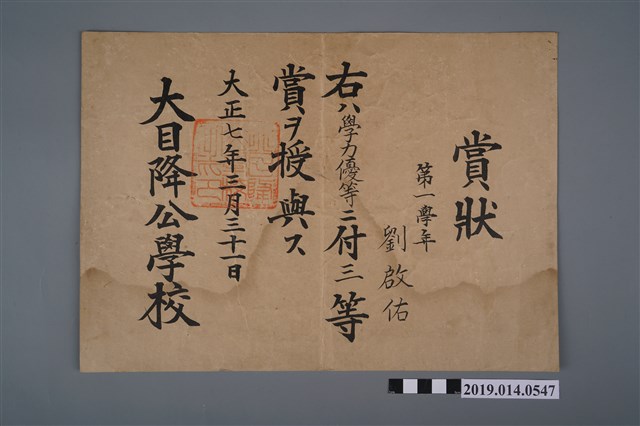 賞狀
第一學年
劉啟佑
右ハ學力優等ニ付三等
賞ヲ授與ス
大正七年三月三十一日
大目降公學校
2019.014.0547